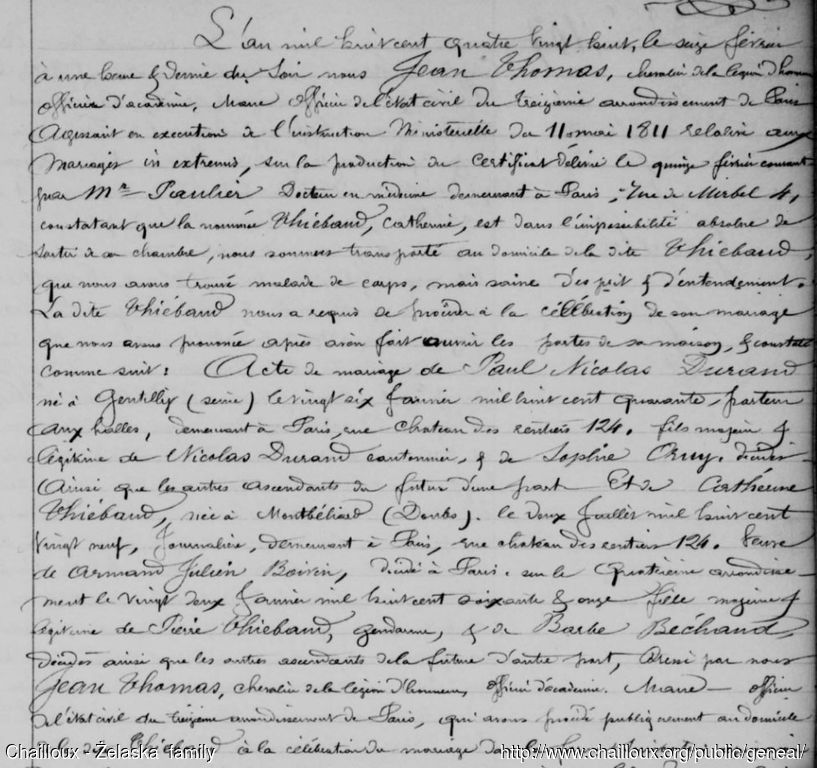 L'an mil huit cent quatre vingt huit, le seize février
à une heure & demie du Soir nous Jean Thomas, chevalier de la légion d'honneur
officier d'académie, Maire officier de l'état civil du treizième arrondissement de Paris
Agissant en exécution de l'instruction Ministerielle du 11 mai 1811 relative aux
Mariages in extremis, sur la production du Certificat délivré le quinze février courant
par Mr Paulier Docteur en médecine demeurant à Paris, rue de Mirbel 4,
constatant que la nommée Thiébaud, Catherine, est dans l'impossibilité absolue de
sortir de sa chambre, nous sommes transporté au domicile de la dite Thiébaud,
que nous avons trouvé malade de corps, mais saine d'esprit & d'entendement.
La dite Thiébaud nous a requis de procéder à la célébration de son mariage
que nous avons prononcée après avoir fait ouvrir les portes de sa maison, & constaté
comme suit : Acte de mariage de Paul Nicolas Durand
né à Gentilly (seine) le vingt six Janvier mil huit cent quarante, porteur
aux halles, demeurant à Paris, rue chateau des rentiers 124. fils majeur &
légitime de Nicolas Durand cantonnier, & de Sophie décédés
Ainsi que les autres ascendants du futur d'une part Et de Catherine
Thiébaud, née à Montbéliard (Doubs). le deux Juillet mil huit cent
vingt neuf, Journalière, demeurant à Paris, rue chateau des rentiers 124. Veuve
de Armand Julien Boivin, décédé à Paris. sur le quatrième arrondisse-
ment le vingt deux Janvier mil huit cent soixante & onze fille majeure &
légitime de Pierre Thiébaud, gendarme, & de Barbe Béchaud,
décédés ainsi que les autres ascendants de la future d'autre part, Dressé par nous
Jean Thomas, chevalier de la légion d'honneur, officier d'académie. Maire officier
de l'état civil du treizième arrondissement de Paris, qui avons procédé publiquement au domicile
de la dite Thiébaud à la célébration du mariage dans la
Chailloux - Żelaska family http://www.chailloux.org/public/geneal/